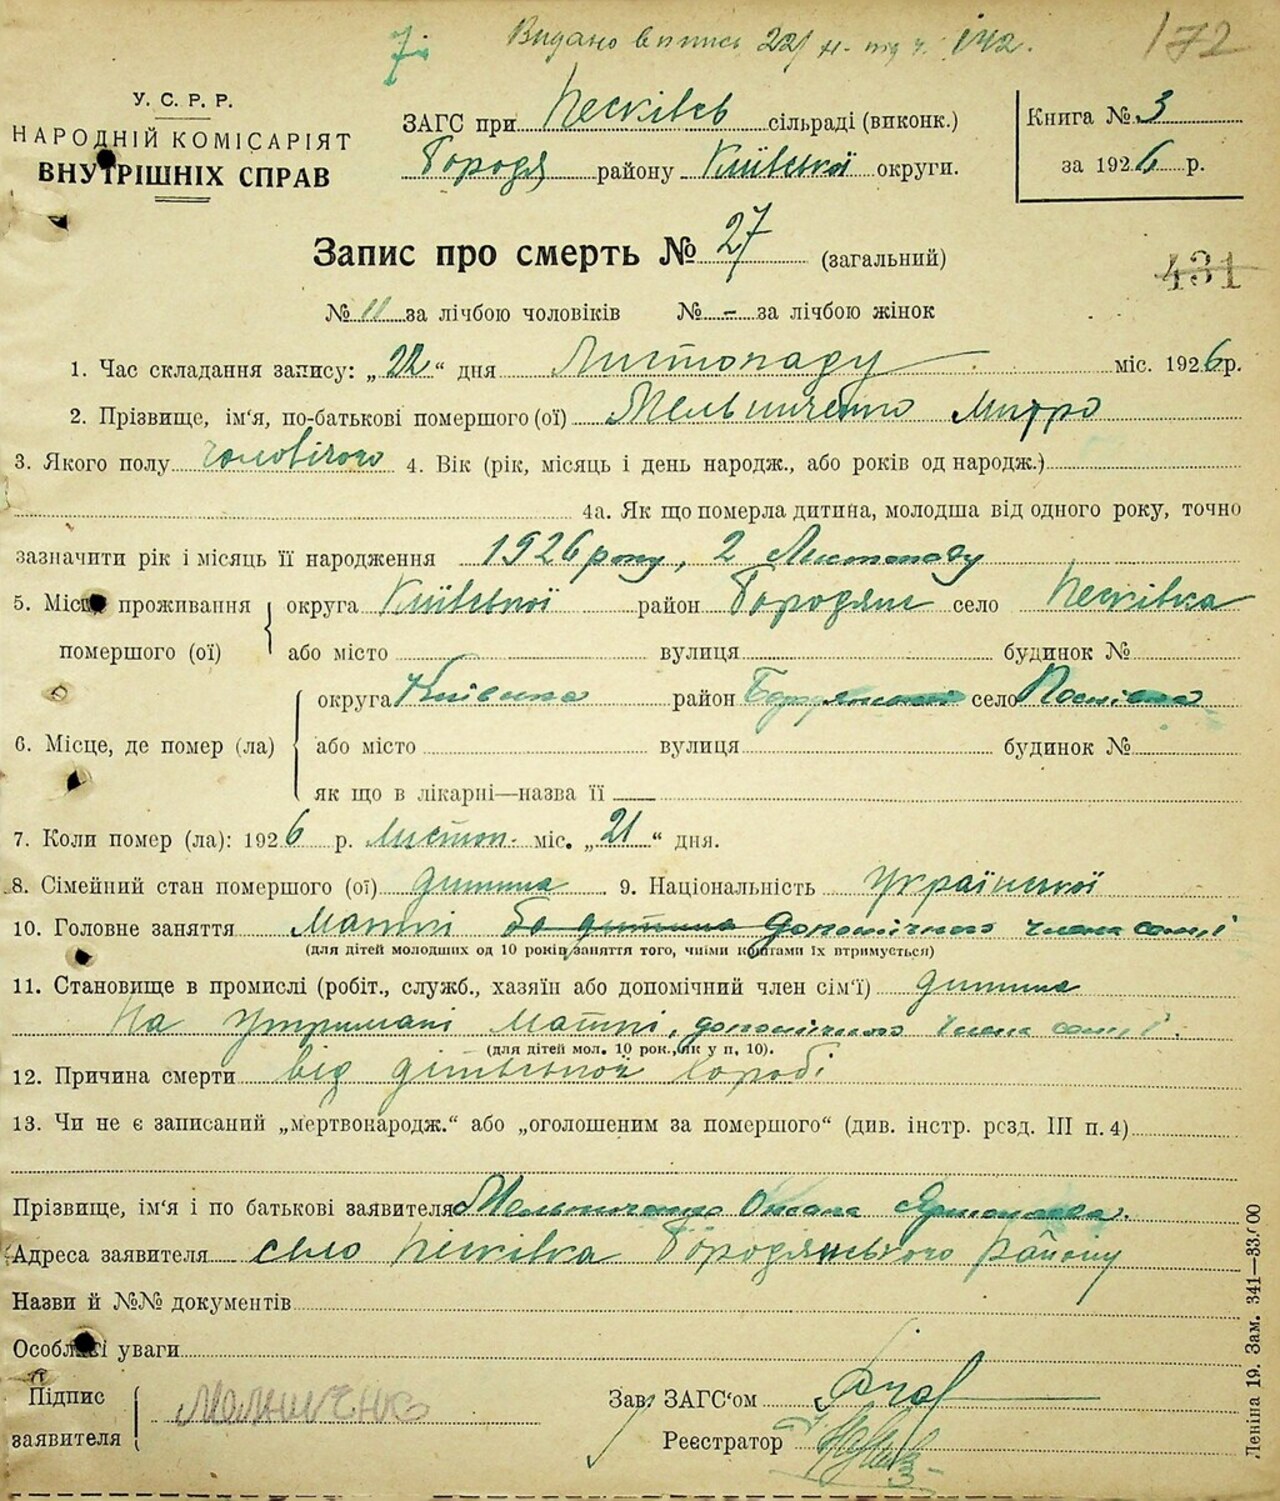 Видано впис 22/ XI- під ч. 142.
172
У. С. Р. Р.
НАРОДНІЙ КОМІСАРІЯТ
ВНУТРІШНІХ СПРАВ
ЗАГС при Песківсь сільраді (виконк.)
Бородя району Київської округи.
Книга № 3
за 1926 р.
Запис про смерть № 27 (загальний)
431
№ 11 за лічбою чоловіків № - за лічбою жінок
1. Час складання запису: „22“ дня Листопаду міс. 1926 р.
2. Прізвище, ім'я, по-батькові помершого (ої) Мельниченко Митро
3. Якого полу чоловічого 4. Вік (рік, місяць і день народж., або років од народж.)
4а. Як що померла дитина, молодша від одного року, точно
зазначити рік і місяць її народження 1926 року, 2 Листопаду
5. Місце проживання помершого (ої) округа Київської район Бородянс село Песківка
або місто вулиця будинок №
6. Місце, де помер (ла) округа Київська район Бородянський село Песківка
або місто вулиця будинок №
як що в лікарні—назва її
7. Коли помер (ла): 1926 р. Листоп. міс. „21“ дня.
8. Сімейний стан помершого (ої) дитина 9. Національність Української
10. Головне заняття Маткі бо дитина допомічного члена семї
(для дітей молодших од 10 років заняття того, чиїми коштами їх втримується)
11. Становище в промислі (робіт., служб., хазяїн або допомічний член сім'ї) дитина
На утримані маткі, допомічного члена семї.
(для дітей мол. 10 рок., як у п. 10).
12. Причина смерти від дитьської хоробі
13. Чи не є записаний „мертвонародж.“ або „оголошеним за помершого“ (див. інстр. розд. III п. 4)
Прізвище, ім'я і по батькові заявителя Мельниченко Оксана
Адреса заявителя село Песківка Бородянського району
Назви й №№ документів
Особливі уваги
Підпис заявителя Мелниченко
Зав. ЗАГС'ом
Реєстратор
Леніна 19. Зам. 341—33.000